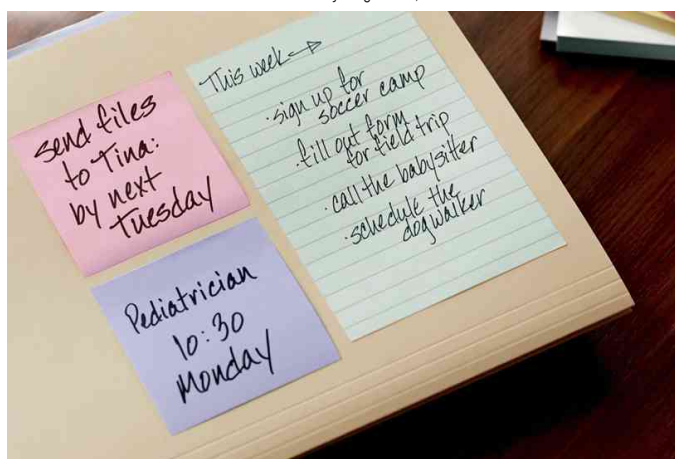 send files
to Tina:
by next
Tuesday
This week→
·sign up for
soccer camp
·fill out form
for field trip
·call the babysitter
·schedule the
dogwalker
Pediatrician
10:30
Monday